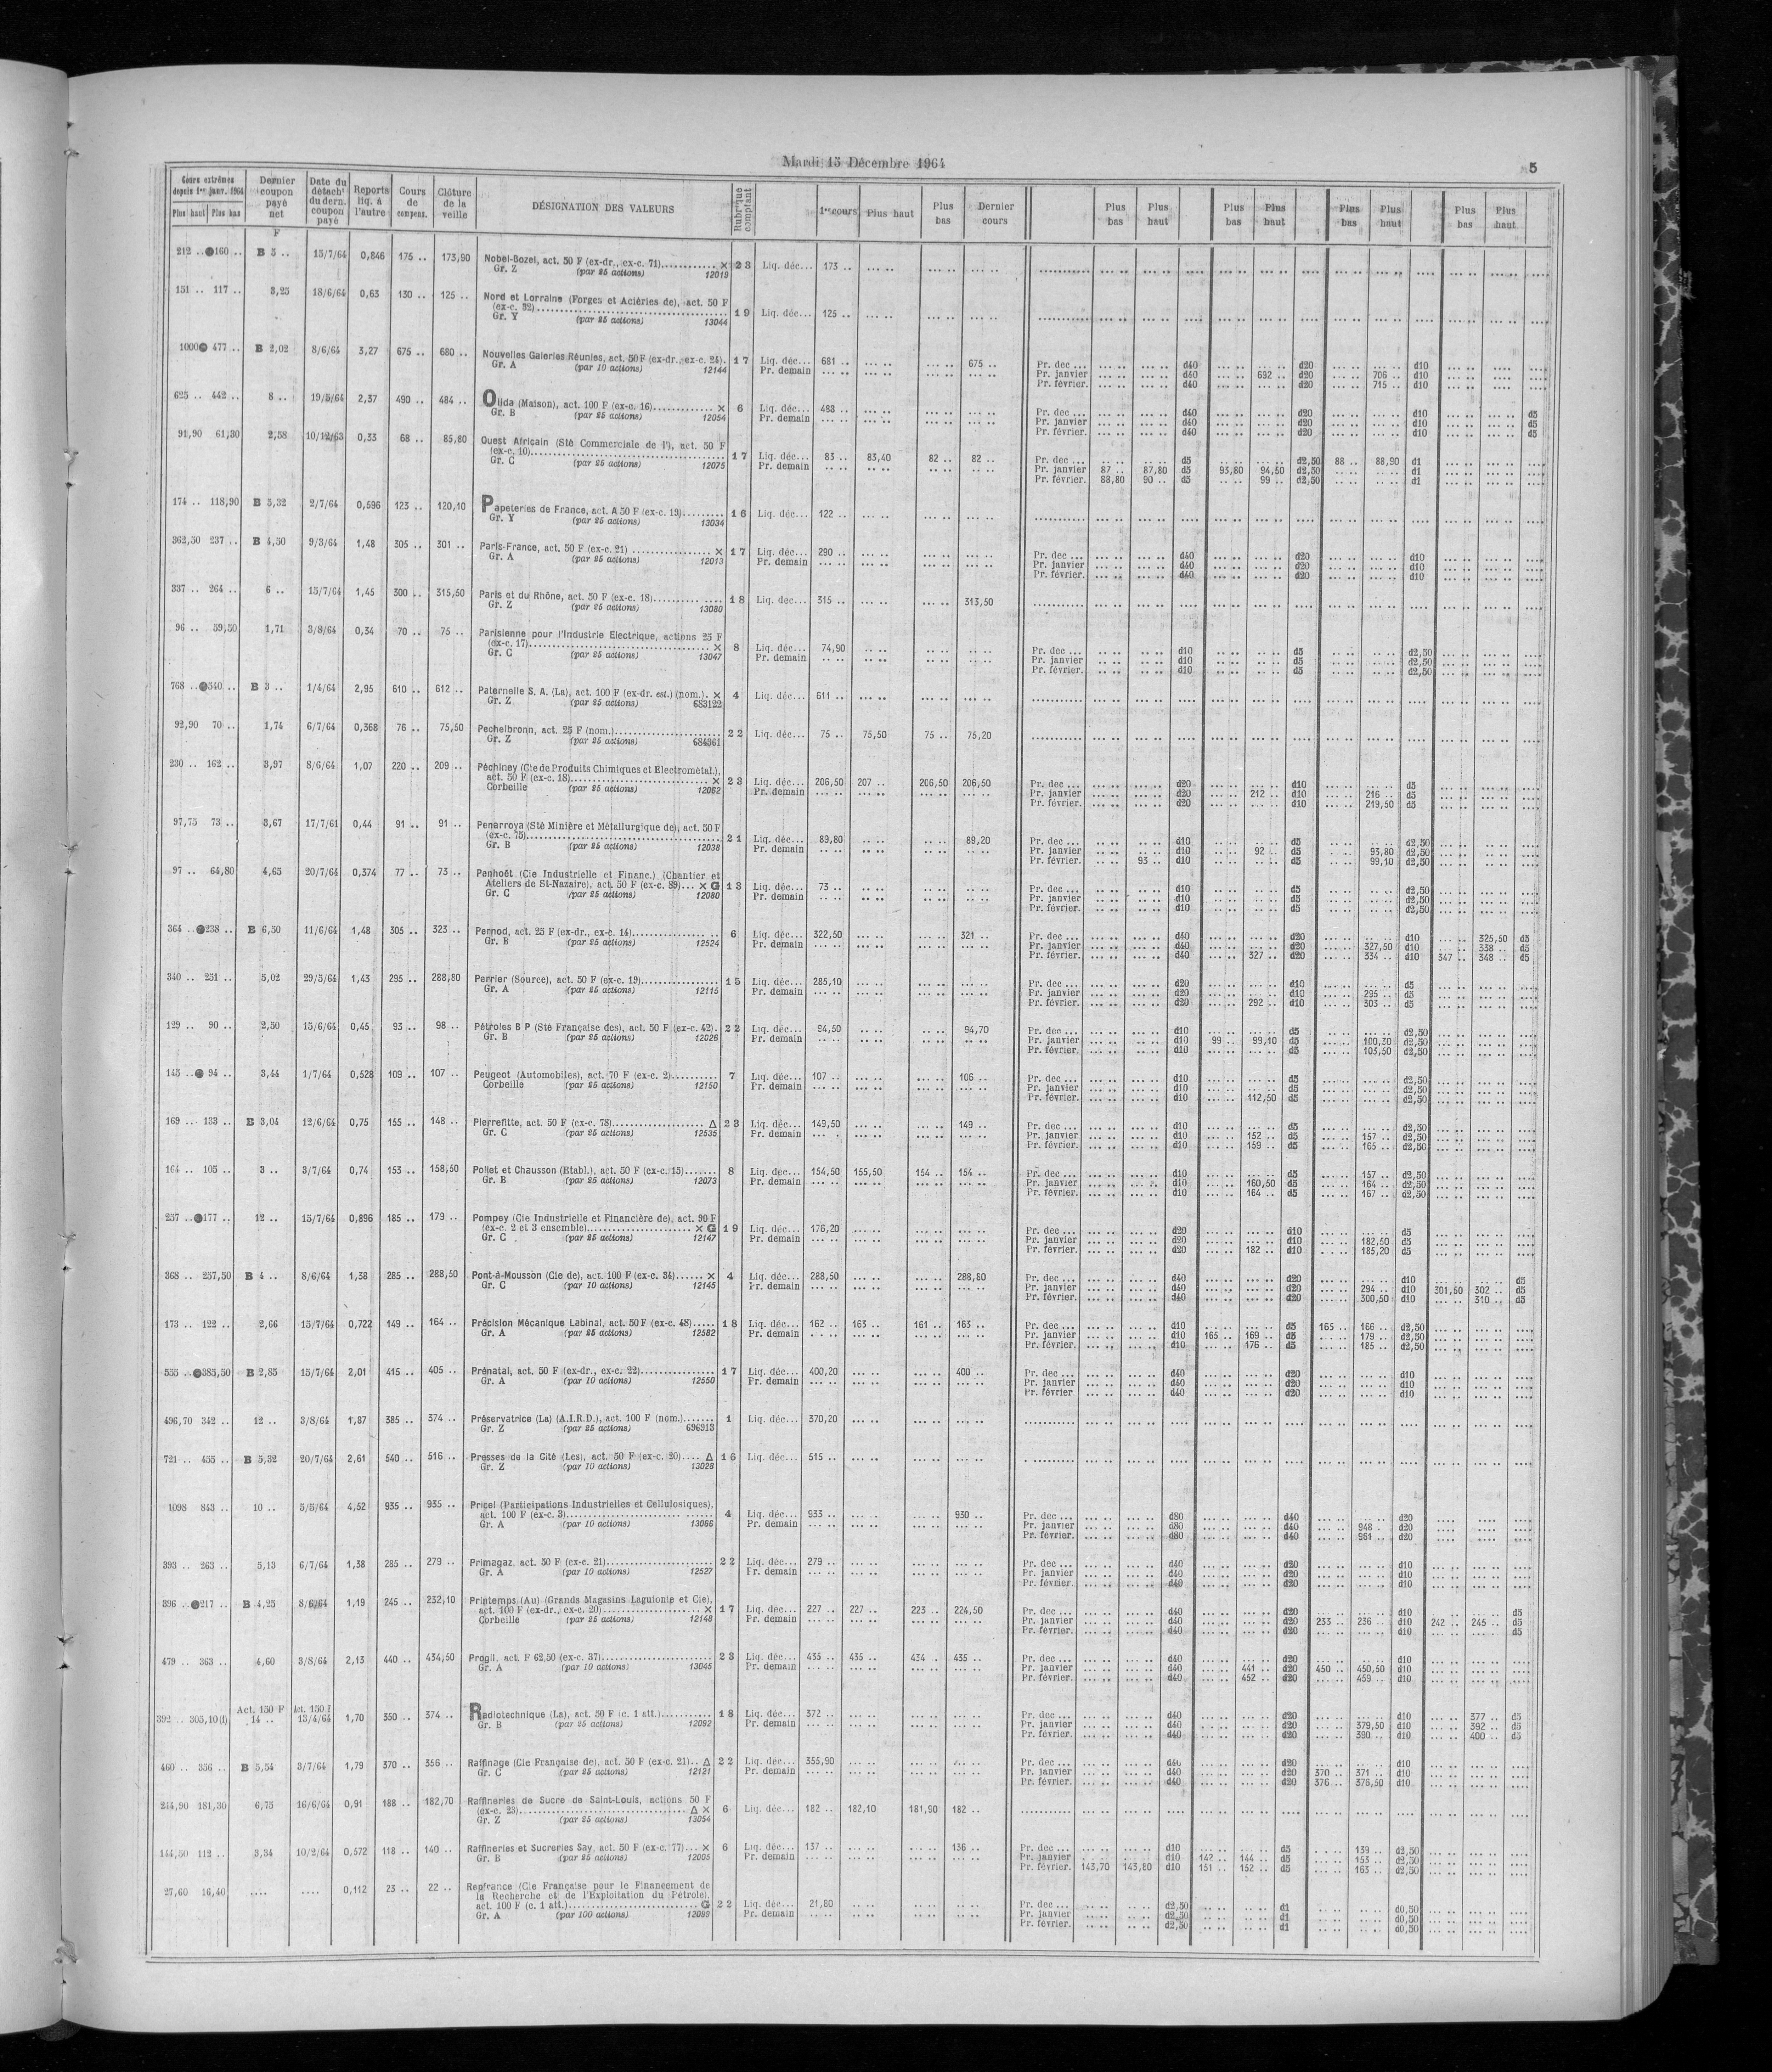 Mardi 15 Décembre 1964
5
Cours extrêmes depuis 1er janv. 1964 Plus haut Plus bas | Dernier coupon payé net | Date du détacht du dern. coupon payé | Reports liq. à l'autre | Cours de compens. | Clôture de la veille | DÉSIGNATION DES VALEURS | Rubrique comptant | 1er cours | Plus haut | Plus bas | Dernier cours | Plus bas | Plus haut | Plus bas | Plus haut | Plus bas | Plus haut | Plus bas | Plus haut
F
212 .. ●160 .. B 5 .. 15/7/64 0,846 175 .. 173,90 Nobel-Bozel, act. 50 F (ex-dr., ex-c. 71) × 23 Liq. déc... 173 ..
Gr. Z (par 25 actions) 12019
151 .. 117 .. 3,25 18/6/64 0,63 130 .. 125 .. Nord et Lorraine (Forges et Aciéries de), act. 50 F
(ex-c. 32) 19 Liq. déc... 125 ..
Gr. Y (par 25 actions) 13044
1000 ● 477 .. B 2,02 8/6/64 3,27 675 .. 680 .. Nouvelles Galeries Réunies, act. 50 F (ex-dr., ex-c. 24). 17 Liq. déc... 681 .. 675 .. Pr. dec ... d40 d20 d10
Gr. A (par 10 actions) 12144 Pr. demain Pr. janvier d40 692 .. d20 706 .. d10
Pr. février. d40 d20 715 .. d10
625 .. 442 .. 8 .. 19/5/64 2,37 490 .. 484 .. Olida (Maison), act. 100 F (ex-c. 16) × 6 Liq. déc... 488 .. Pr. dec ... d40 d20 d10 d5
Gr. B (par 25 actions) 12054 Pr. demain Pr. janvier d40 d20 d10 d5
Pr. février. d40 d20 d10 d5
91,90 61,30 2,58 10/12/63 0,33 68 .. 85,80 Ouest Africain (Sté Commerciale de l'), act. 50 F
(ex-c. 10) 17 Liq. déc... 83 .. 83,40 82 .. 82 .. Pr. dec ... d5 d2,50 88 .. 88,90 d1
Gr. C (par 25 actions) 12075 Pr. demain Pr. janvier 87 .. 87,80 d5 93,80 94,50 d2,50 d1
Pr. février. 88,80 90 .. d5 99 .. d2,50 d1
174 .. 118,90 B 5,32 2/7/64 0,596 123 .. 120,10 Papeteries de France, act. A 50 F (ex-c. 19) 16 Liq. déc... 122 ..
Gr. Y (par 25 actions) 13034
362,50 237 .. B 4,50 9/3/64 1,48 305 .. 301 .. Paris-France, act. 50 F (ex-c. 21) × 17 Liq. déc... 290 .. Pr. dec ... d40 d20 d10
Gr. A (par 25 actions) 12013 Pr. demain Pr. janvier d40 d20 d10
Pr. février. d40 d20 d10
337 .. 264 .. 6 .. 15/7/64 1,45 300 .. 315,50 Paris et du Rhône, act. 50 F (ex-c. 18) 18 Liq. dec... 315 .. 313,50
Gr. Z (par 25 actions) 13080
96 .. 59,50 1,71 3/8/64 0,34 70 .. 75 .. Parisienne pour l'Industrie Electrique, actions 25 F
(ex-c. 17) × 8 Liq. déc... 74,90 Pr. dec ... d10 d5 d2,50
Gr. C (par 25 actions) 13047 Pr. demain Pr. janvier d10 d5 d2,50
Pr. février. d10 d5 d2,50
768 .. ●540 .. B 3 .. 1/4/64 2,95 610 .. 612 .. Paternelle S. A. (La), act. 100 F (ex-dr. est.) (nom.). × 4 Liq. déc... 611 ..
Gr. Z (par 25 actions) 683122
92,90 70 .. 1,74 6/7/64 0,368 76 .. 75,50 Pechelbronn, act. 25 F (nom.) 22 Liq. déc... 75 .. 75,50 75 .. 75,20
Gr. Z (par 25 actions) 684361
230 .. 162 .. 3,97 8/6/64 1,07 220 .. 209 .. Péchiney (Cie de Produits Chimiques et Electrométal.),
act. 50 F (ex-c. 18) × 23 Liq. déc... 206,50 207 .. 206,50 206,50 Pr. dec ... d20 d10 d5
Corbeille (par 25 actions) 12062 Pr. demain Pr. janvier d20 212 .. d10 216 .. d5
Pr. février. d20 d10 219,50 d5
97,75 73 .. 3,67 17/7/61 0,44 91 .. 91 .. Penarroya (Sté Minière et Métallurgique de), act. 50 F
(ex-c. 75) 21 Liq. déc... 89,80 89,20 Pr. dec ... d10 d5 d2,50
Gr. B (par 25 actions) 12038 Pr. demain Pr. janvier d10 92 .. d5 93,80 d2,50
Pr. février. 93 .. d10 d5 99,10 d2,50
97 .. 64,80 4,65 20/7/64 0,374 77 .. 73 .. Penhoët (Cie Industrielle et Financ.) (Chantier et
Ateliers de St-Nazaire), act. 50 F (ex-c. 89)... × G 13 Liq. déc... 73 .. Pr. dec ... d10 d5 d2,50
Gr. C (par 25 actions) 12080 Pr. demain Pr. janvier d10 d5 d2,50
Pr. février. d10 d5 d2,50
364 .. ●238 .. B 6,50 11/6/64 1,48 305 .. 323 .. Pernod, act. 25 F (ex-dr., ex-c. 14) 6 Liq. déc... 322,50 321 .. Pr. dec ... d40 d20 d10 325,50 d5
Gr. B (par 25 actions) 12524 Pr. demain Pr. janvier d40 d20 327,50 d10 338 .. d5
Pr. février. d40 327 .. d20 334 .. d10 347 .. 348 .. d5
340 .. 251 .. 5,02 29/5/64 1,43 295 .. 288,80 Perrier (Source), act. 50 F (ex-c. 19) 15 Liq. déc... 285,10 Pr. dec ... d20 d10 d5
Gr. A (par 25 actions) 12115 Pr. demain Pr. janvier d20 d10 295 .. d5
Pr. février. d20 292 .. d10 303 .. d5
129 .. 90 .. 2,50 15/6/64 0,45 93 .. 98 .. Pétroles B P (Sté Française des), act. 50 F (ex-c. 42). 22 Liq. déc... 94,50 94,70 Pr. dec ... d10 d5 d2,50
Gr. B (par 25 actions) 12026 Pr. demain Pr. janvier d10 99 .. 99,10 d5 100,30 d2,50
Pr. février. d10 d5 103,50 d2,50
145 .. ● 94 .. 3,44 1/7/64 0,528 109 .. 107 .. Peugeot (Automobiles), act. 70 F (ex-c. 2) 7 Liq. déc... 107 .. 106 .. Pr. dec ... d10 d5 d2,50
Corbeille (par 25 actions) 12150 Pr. demain Pr. janvier d10 d5 d2,50
Pr. février. d10 112,50 d5 d2,50
169 .. 133 .. B 3,04 12/6/64 0,75 155 .. 148 .. Pierrefitte, act. 50 F (ex-c. 78) Δ 23 Liq. déc... 149,50 149 .. Pr. dec ... d10 d5 d2,50
Gr. C (par 25 actions) 12535 Pr. demain Pr. janvier d10 152 .. d5 157 .. d2,50
Pr. février. d10 159 .. d5 165 .. d2,50
164 .. 105 .. 3 .. 3/7/64 0,74 153 .. 158,50 Poliet et Chausson (Etabl.), act. 50 F (ex-c. 15) 8 Liq. déc... 154,50 155,50 154 .. 154 .. Pr. dec ... d10 d5 157 .. d2,50
Gr. B (par 25 actions) 12073 Pr. demain Pr. janvier d10 160,50 d5 164 .. d2,50
Pr. février. d10 164 .. d5 167 .. d2,50
257 .. ●177 .. 12 .. 15/7/64 0,896 185 .. 179 .. Pompey (Cie Industrielle et Financière de), act. 90 F
(ex-c. 2 et 3 ensemble) × G 19 Liq. déc... 176,20 Pr. dec ... d20 d10 d5
Gr. C (par 25 actions) 12147 Pr. demain Pr. janvier d20 d10 182,50 d5
Pr. février. d20 182 .. d10 185,20 d5
368 .. 257,50 B 4 .. 8/6/64 1,38 285 .. 288,50 Pont-à-Mousson (Cie de), act. 100 F (ex-c. 34) × 4 Liq. déc... 288,50 288,80 Pr. dec ... d40 d20 d10 d5
Gr. C (par 10 actions) 12145 Pr. demain Pr. janvier d40 d20 294 .. d10 301,50 302 .. d5
Pr. février. d40 d20 300,50 d10 310 .. d5
173 .. 122 .. 2,66 15/7/64 0,722 149 .. 164 .. Précision Mécanique Labinal, act. 50 F (ex-c. 48) 18 Liq. déc... 162 .. 163 .. 161 .. 163 .. Pr. dec ... d10 d5 165 .. 166 .. d2,50
Gr. A (par 25 actions) 12582 Pr. demain Pr. janvier d10 165 .. 169 .. d5 179 .. d2,50
Pr. février. d10 176 .. d5 185 .. d2,50
555 .. ●385,50 B 2,85 15/7/64 2,01 415 .. 405 .. Prénatal, act. 50 F (ex-dr., ex-c. 22) 17 Liq. déc... 400,20 400 .. Pr. dec ... d40 d20 d10
Gr. A (par 10 actions) 12550 Pr. demain Pr. janvier d40 d20 d10
Pr. février d40 d20 d10
496,70 342 .. 12 .. 3/8/64 1,87 385 .. 374 .. Préservatrice (La) (A.I.R.D.), act. 100 F (nom.) 1 Liq. déc... 370,20
Gr. Z (par 25 actions) 696913
721 .. 455 .. B 5,32 20/7/64 2,61 540 .. 516 .. Presses de la Cité (Les), act. 50 F (ex-c. 20) Δ 16 Liq. déc... 515 ..
Gr. Z (par 10 actions) 13028
1098 843 .. 10 .. 5/5/64 4,52 935 .. 935 .. Pricel (Participations Industrielles et Cellulosiques),
act. 100 F (ex-c. 3) 4 Liq. déc... 933 .. 930 .. Pr. dec ... d80 d40 d20
Gr. A (par 10 actions) 13066 Pr. demain Pr. janvier d80 d40 948 .. d20
Pr. février. d80 d40 961 .. d20
393 .. 263 .. 5,13 6/7/64 1,38 285 .. 279 .. Primagaz, act. 50 F (ex-c. 21) 22 Liq. déc... 279 .. Pr. dec ... d40 d20 d10
Gr. A (par 10 actions) 12527 Pr. demain Pr. janvier d40 d20 d10
Pr. février. d40 d20 d10
396 .. ●217 .. B 4,25 8/6/64 1,19 245 .. 232,10 Printemps (Au) (Grands Magasins Laguionie et Cie),
act. 100 F (ex-dr., ex-c. 20) × 17 Liq. déc... 227 .. 227 .. 223 .. 224,50 Pr. dec ... d40 d20 d10 d5
Corbeille (par 25 actions) 12148 Pr. demain Pr. janvier d40 d20 233 .. 236 .. d10 242 .. 245 .. d5
Pr. février. d40 d20 d10 d5
479 .. 363 .. 4,60 3/8/64 2,13 440 .. 434,50 Progil, act. F 62,50 (ex-c. 37) 23 Liq. déc... 435 .. 435 .. 434 .. 435 .. Pr. dec ... d40 d20 d10
Gr. A (par 10 actions) 13045 Pr. demain Pr. janvier d40 441 .. d20 450 .. 450,50 d10
Pr. février. d40 452 .. d20 459 .. d10
Act. 150 F Act. 150 F
392 .. 305,10(l) 14 .. 13/4/64 1,70 350 .. 374 .. Radiotechnique (La), act. 50 F (c. 1 att.) 18 Liq. déc... 372 .. Pr. dec ... d40 d20 d10 377 .. d5
Gr. B (par 25 actions) 12092 Pr. demain Pr. janvier d40 d20 379,50 d10 392 .. d5
Pr. février. d40 d20 390 .. d10 400 .. d5
460 .. 356 .. B 5,54 3/7/64 1,79 370 .. 356 .. Raffinage (Cie Française de), act. 50 F (ex-c. 21).. Δ 22 Liq. déc... 355,90 Pr. dec ... d40 d20 d10
Gr. C (par 25 actions) 12121 Pr. demain Pr. janvier d40 d20 370 .. 371 .. d10
Pr. février. d40 d20 376 .. 376,50 d10
244,90 181,30 6,75 16/6/64 0,91 188 .. 182,70 Raffineries de Sucre de Saint-Louis, actions 50 F
(ex-c. 23) Δ × 6 Liq. déc... 182 .. 182,10 181,90 182 ..
Gr. Z (par 25 actions) 13054
144,50 112 .. 3,34 10/2/64 0,572 118 .. 140 .. Raffineries et Sucreries Say, act. 50 F (ex-c. 77)... × 6 Liq. déc... 137 .. 136 .. Pr. dec ... d10 d5 139 .. d2,50
Gr. B (par 25 actions) 12005 Pr. demain Pr. janvier d10 142 .. 144 .. d5 153 .. d2,50
Pr. février. 143,70 143,80 d10 151 .. 152 .. d5 163 .. d2,50
27,60 16,40 .... .... 0,112 23 .. 22 .. Repfrance (Cie Française pour le Financement de
la Recherche et de l'Exploitation du Pétrole),
act. 100 F (c. 1 att.) G 22 Liq. déc... 21,80 Pr. dec ... d2,50 d1 d0,50
Gr. A (par 100 actions) 12099 Pr. demain Pr. janvier d2,50 d1 d0,50
Pr. février. d2,50 d1 d0,50